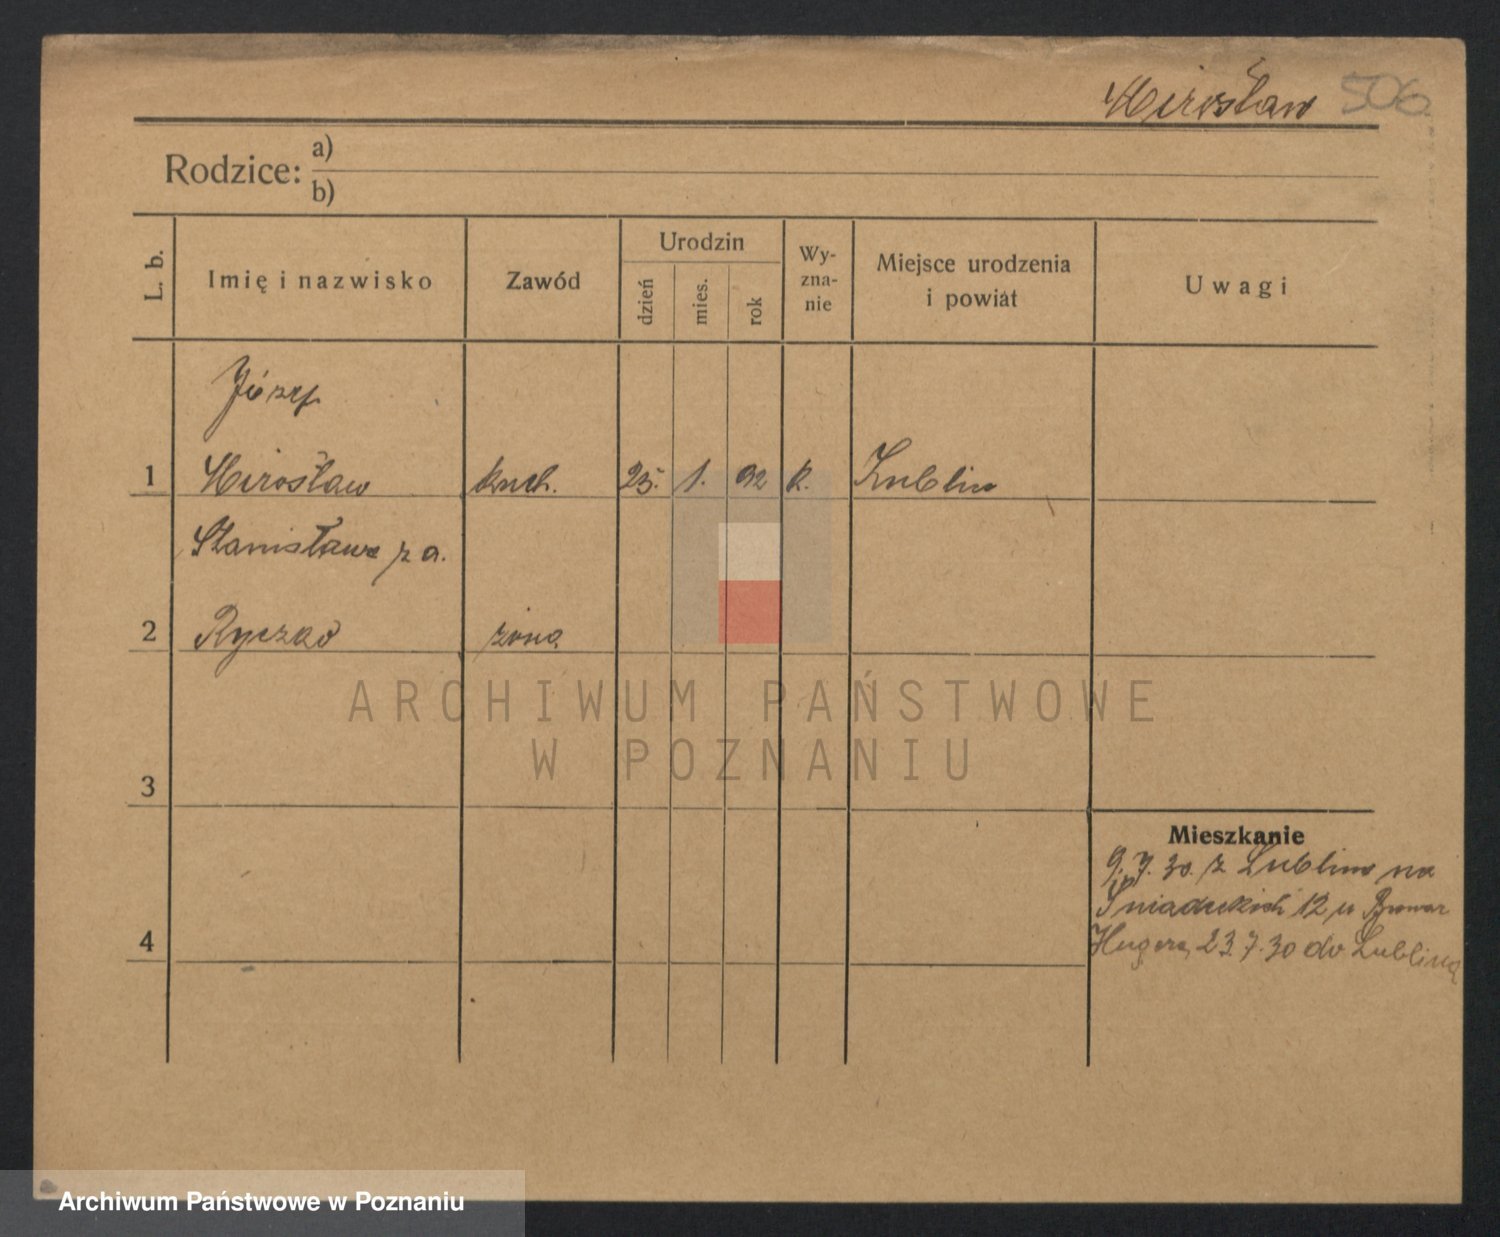 Mirosław 506
Rodzice: a)
b)
L. b.
Imię i nazwisko
Zawód
Urodzin
dzień
mies.
rok
Wy-
zna-
nie
Miejsce urodzenia
i powiat
Uwagi
Józef
1 Mirosław kuch. 25. 1. 92 k. Lublin
Stanisława z d.
2 żona
ARCHIWUM PAŃSTWOWE
W POZNANIU
3
Mieszkanie
9.7.30. z Lublina na
12 u
4
23.7.30 do Lublina
Archiwum Państwowe w Poznaniu